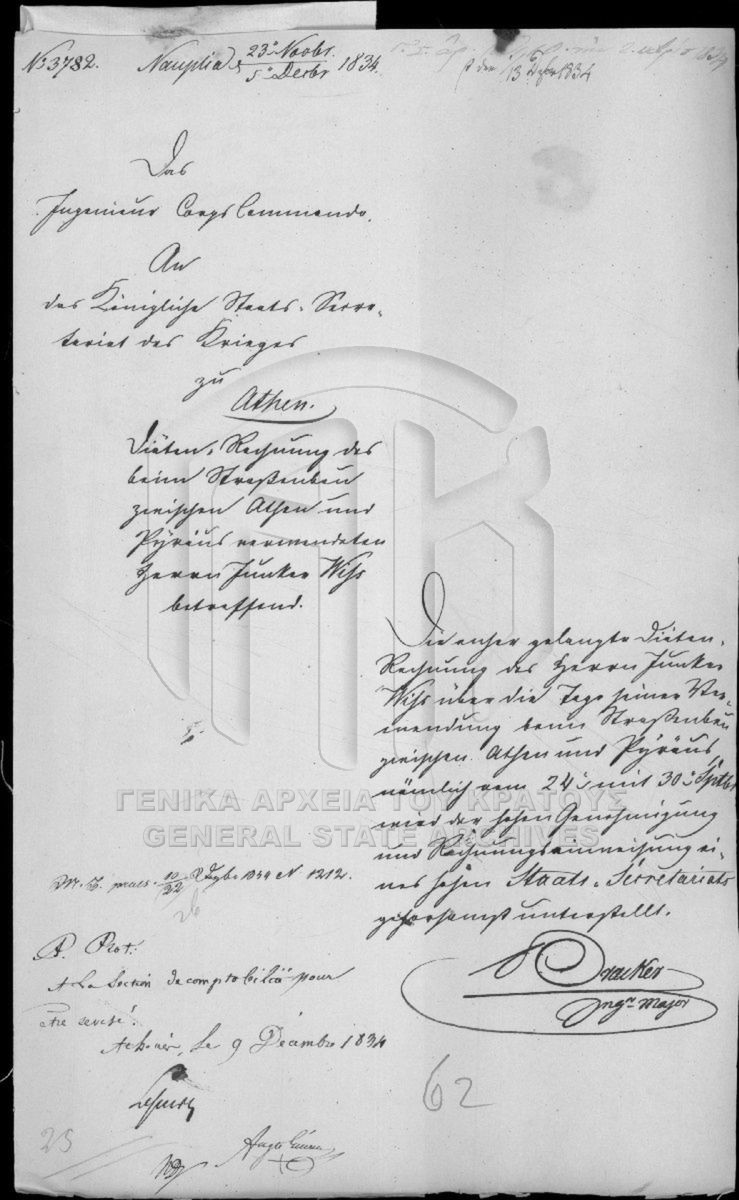 No 3782.
Nauplia d. 23n Novbr. / 5n Decbr 1834.
13 Dezbr 1834
Das
Ingenieur Corps Commando.
An
das Königliche Staats-Secre-
tariat des Krieges
zu
Athen.
Diäten-Rechnung des
beim Straßenbau
zwischen Athen und
Pyräus verwendeten
Herrn Junker Wiss
betreffend.
Die anher gelangte Diäten-
Rechnung des Herrn Junker
Wiss über die Tage seiner Ver-
wendung beim Straßenbau
zwischen Athen und Pyräus,
nämlich vom 24n mit 30n Sptbr
wird der hohen Genehmigung
und Rechnungseinweisung ei-
nes hohen Staats-Secretariats
gehorsamst unterstellt.
Ingr. Major
praes. 10/22 1834 No 1212.
26
P. Prot.
A la Section de comptabilité pour
être revisé.
Athènes, le 9 Décembre 1834
62
25
ΓΕΝΙΚΑ ΑΡΧΕΙΑ ΤΟΥ ΚΡΑΤΟΥΣ
GENERAL STATE ARCHIVES